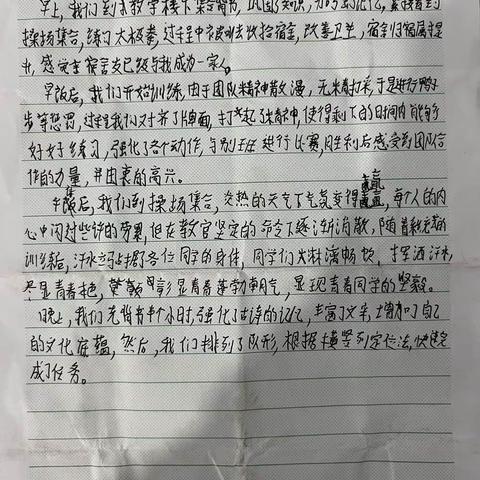 早上,我们到教学楼下集合背书,巩固知识,加强记忆,紧接着到
操场集合,练习太极拳,过半中被喊去收拾宿舍,改善卫生,宿舍归宿属于
书,感觉宿舍已经与我成为一家人。
早饭后,我们开始训练,由于团队精神散漫,无精打采,于是进行鸭子
步等惩罚,过半我们才齐了牌面,打起了精神,使得剩下的时间内能够
好好练习,强化了各个动作,与别班进行比赛,胜利后感受到团队合
作的力量,并由衷的高兴。
午饭后,我们到操场集合,炎热的天气下气氛变得,每个人的内
心中闪过些许的劳累,但在教官坚定的命令下逐渐消散,随着教充实的
训练后,汗水占据了各位同学的身体,同学们大汗淋漓畅饮,挥洒汗水,
尽显青春,更彰显青春蓬勃朝气,显现青春同学的坚毅。
晚上,我们先背书半个小时,强化了古诗的记忆,丰富了文学,增加了自己
的文化底蕴,然后,我们排列了队形,根据横竖列定位法,快速完
成了任务。